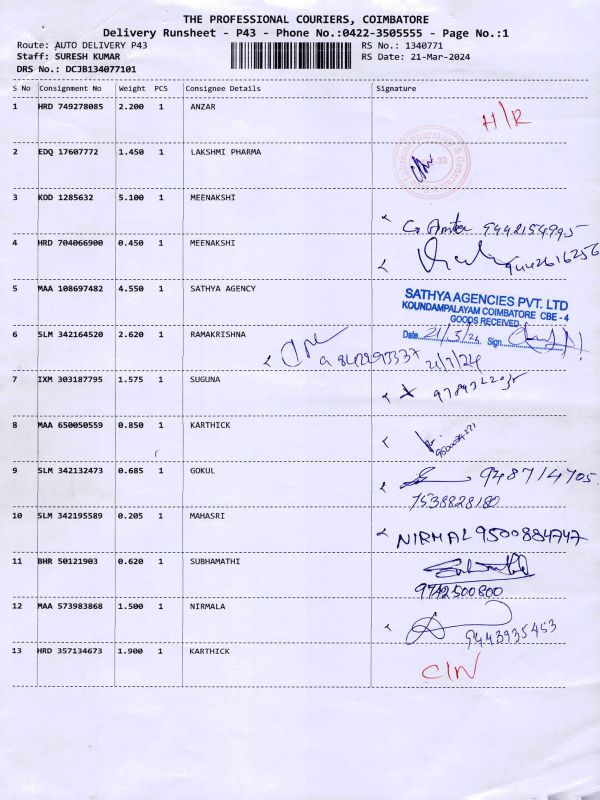 THE PROFESSIONAL COURIERS, COIMBATORE
Delivery Runsheet - P43 - Phone No.:0422-3505555 - Page No.:1
Route: AUTO DELIVERY P43 RS No.: 1340771
Staff: SURESH KUMAR RS Date: 21-Mar-2024
DRS No.: DCJB134077101
S No Consignment No Weight PCS Consignee Details Signature
1 HRD 749278085 2.200 1 ANZAR H/R
2 EDQ 17607772 1.450 1 LAKSHMI PHARMA
3 KOD 1285632 5.100 1 MEENAKSHI
9442154995
4 HRD 704066900 0.450 1 MEENAKSHI
9442616256
5 MAA 108697482 4.550 1 SATHYA AGENCY
SATHYA AGENCIES PVT. LTD
KOUNDAMPALAYAM COIMBATORE CBE - 4
GOODS RECEIVED
Date Sign
6 SLM 342164520 2.620 1 RAMAKRISHNA
7 IXM 303187795 1.575 1 SUGUNA
8 MAA 650050559 0.850 1 KARTHICK
9 SLM 342132473 0.685 1 GOKUL 948714705
7538828180
10 SLM 342195589 0.205 1 MAHASRI
NIRMAL 9500884747
11 BHR 50121903 0.620 1 SUBHAMATHI
9742500800
12 MAA 573983868 1.500 1 NIRMALA
9443935453
13 HRD 357134673 1.900 1 KARTHICK C/N